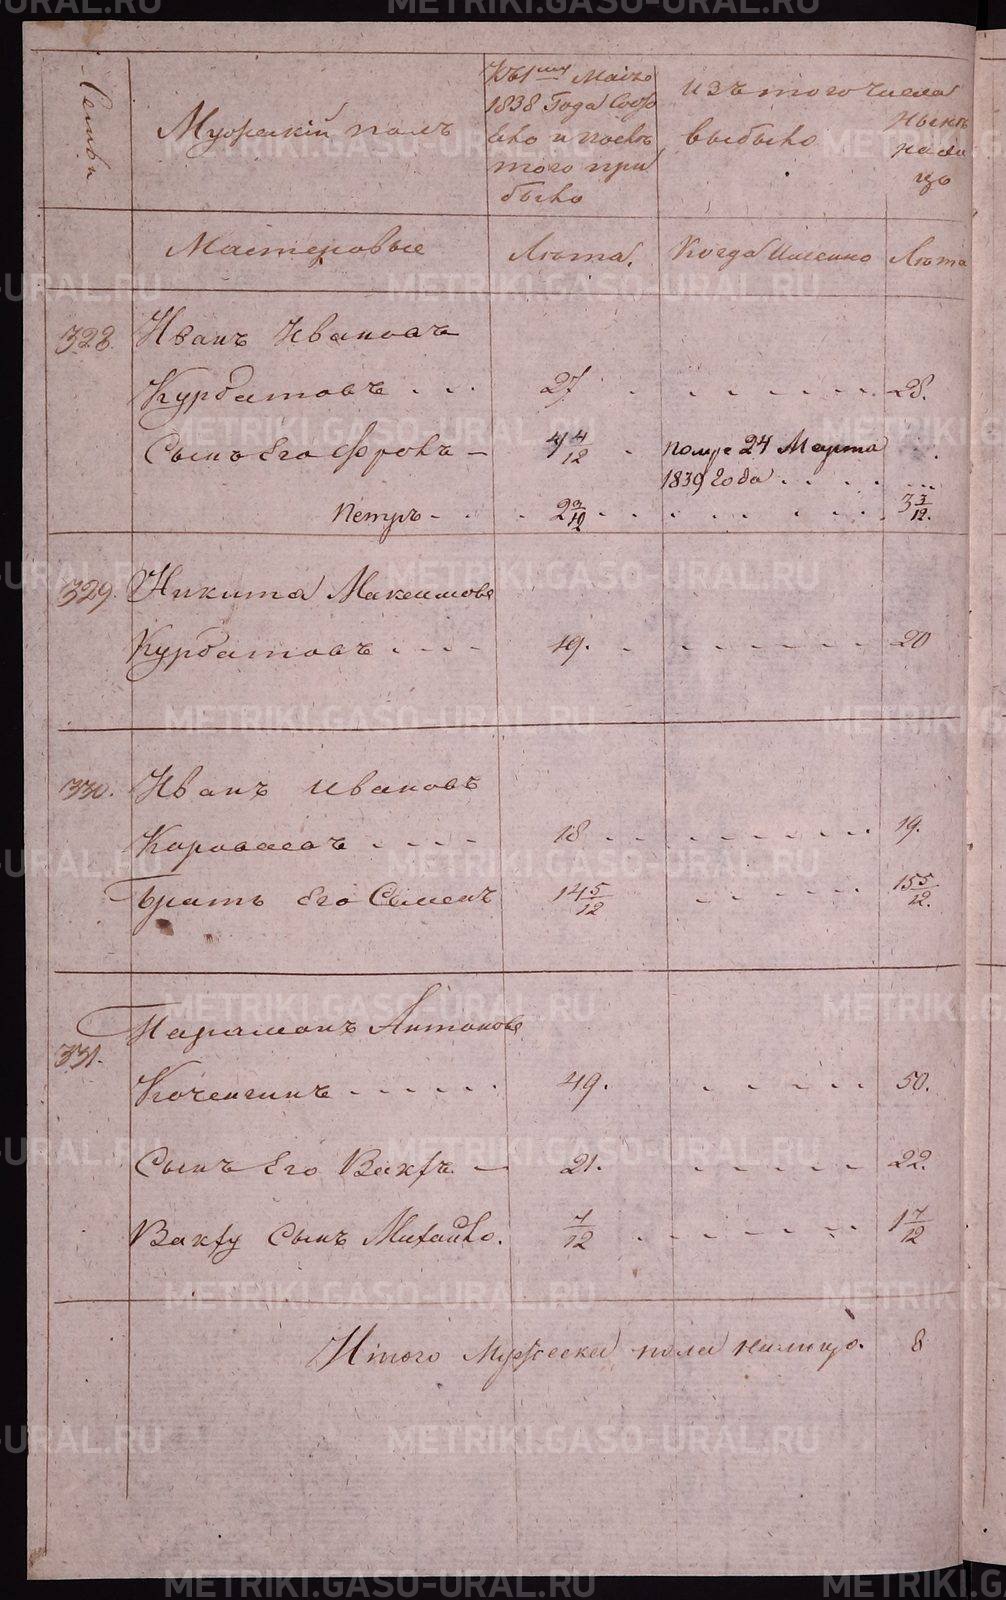 Семьи
Мужескій полъ
Къ 1му Маія
1838 Года Состо
яло и послѣ
того при
было
изъ того числа
выбыло
нынѣ
на ли
цо
Мастеровые
Лѣта.
Когда Именно
Лѣта
328. Иванъ Ивановъ
Курбатовъ 27 28.
Сынъ Его Фролъ 4 4/12 помре 24 Марта
1839 Года
Петръ 2 3/12 3 3/12.
329. Никита Максимовъ
Курбатовъ 19. 20
330. Иванъ Ивановъ
18 19.
Братъ Его Семенъ 14 5/12 15 5/12.
331. Парамонъ Антоновъ
49. 50.
Сынъ Его 21. 22.
сынъ Михайло. 7/12 1 7/12
Итого Мужеска пола налицо. 8
METRIKI.GASO-URAL.RU